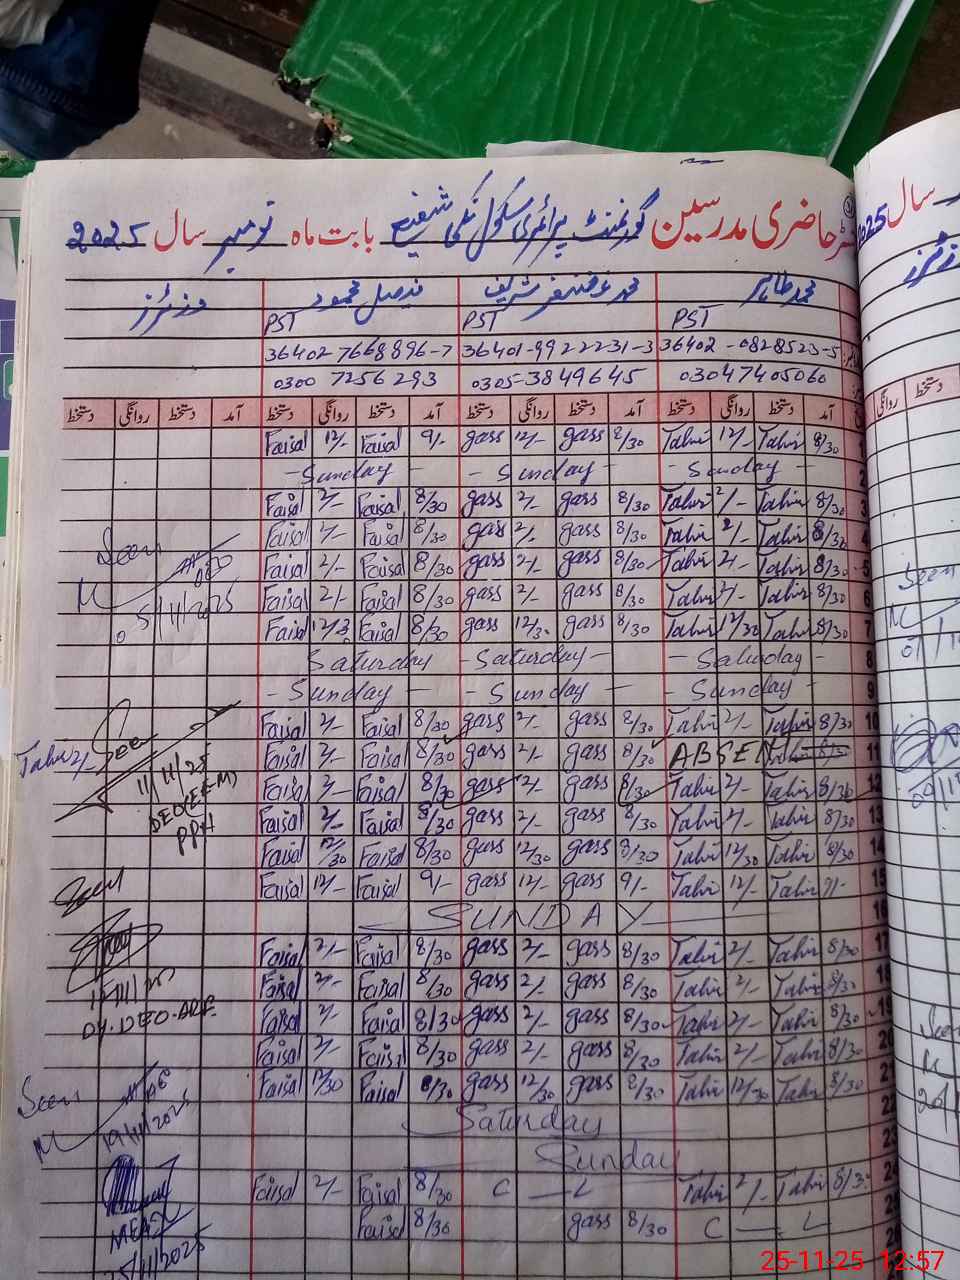 رجسٹر حاضری مدرسین گورنمنٹ پرائمری سکول نکی شفیع بابت ماہ نومبر سال 2025
محمد طاہر محمد غضنفر شریف فیصل محمود وزٹرز
PST PST PST
36402 7668896-7 36401-9922231-3 36402-0828523-5
0300 7256293 0305-3849645 03047405060
آمد دستخط روانگی دستخط آمد دستخط روانگی دستخط آمد دستخط روانگی دستخط آمد دستخط روانگی دستخط
Faisal 12/- Faisal 9/- gass 12/- gass 8/30 Tahir 12/- Tahir 8/30 1
-Sunday- -Sunday- -Sunday- 2
Faisal 2/- Faisal 8/30 gass 2/- gass 8/30 Tahir 2/- Tahir 8/30 3
Faisal 2/- Faisal 8/30 gass 2/- gass 8/30 Tahir 2/- Tahir 8/30 4
Seen
Faisal 2/- Faisal 8/30 gass 2/- gass 8/30 Tahir 2/- Tahir 8/30 5
5/11/2025
Faisal 2/- Faisal 8/30 gass 2/- gass 8/30 Tahir 2/- Tahir 8/30 6
Faisal 12/30 Faisal 8/30 gass 12/30 gass 8/30 Tahir 12/30 Tahir 8/30 7
Saturday -Saturday- -Saturday- 8
-Sunday- -Sunday- -Sunday- 9
Faisal 2/- Faisal 8/30 gass 2/- gass 8/30 Tahir 2/- Tahir 8/30 10
Tahir 2/- Seen
Faisal 2/- Faisal 8/30 gass 2/- gass 8/30 ABSENT 11
11/11/25
DEO(EE-M)
PPN
Faisal 2/- Faisal 8/30 gass 2/- gass 8/30 Tahir 2/- Tahir 8/30 12
Faisal 2/- Faisal 8/30 gass 2/- gass 8/30 Tahir 2/- Tahir 8/30 13
Faisal 12/30 Faisal 8/30 gass 12/30 gass 8/30 Tahir 12/30 Tahir 8/30 14
Seen
Faisal 12/- Faisal 9/- gass 12/- gass 9/- Tahir 12/- Tahir 9/- 15
SUNDAY 16
Faisal 2/- Faisal 8/30 gass 2/- gass 8/30 Tahir 2/- Tahir 8/30 17
Faisal 2/- Faisal 8/30 gass 2/- gass 8/30 Tahir 2/- Tahir 8/30 18
Dy. DEO
Faisal 2/- Faisal 8/30 gass 2/- gass 8/30 Tahir 2/- Tahir 8/30 19
Faisal 2/- Faisal 8/30 gass 2/- gass 8/30 Tahir 2/- Tahir 8/30 20
Seen
Faisal 12/30 Faisal 8/30 gass 12/30 gass 8/30 Tahir 12/30 Tahir 8/30 21
19/11/2025
Saturday 22
Sunday 23
Faisal 2/- Faisal 8/30 C — L Tahir 2/- Tahir 8/30 24
Faisal 8/30 gass 8/30 C — L 25
MEA
25/11/2025
26
سال 2025
وزٹرز
روانگی دستخط
Seen
Seen
25-11-25 12:57